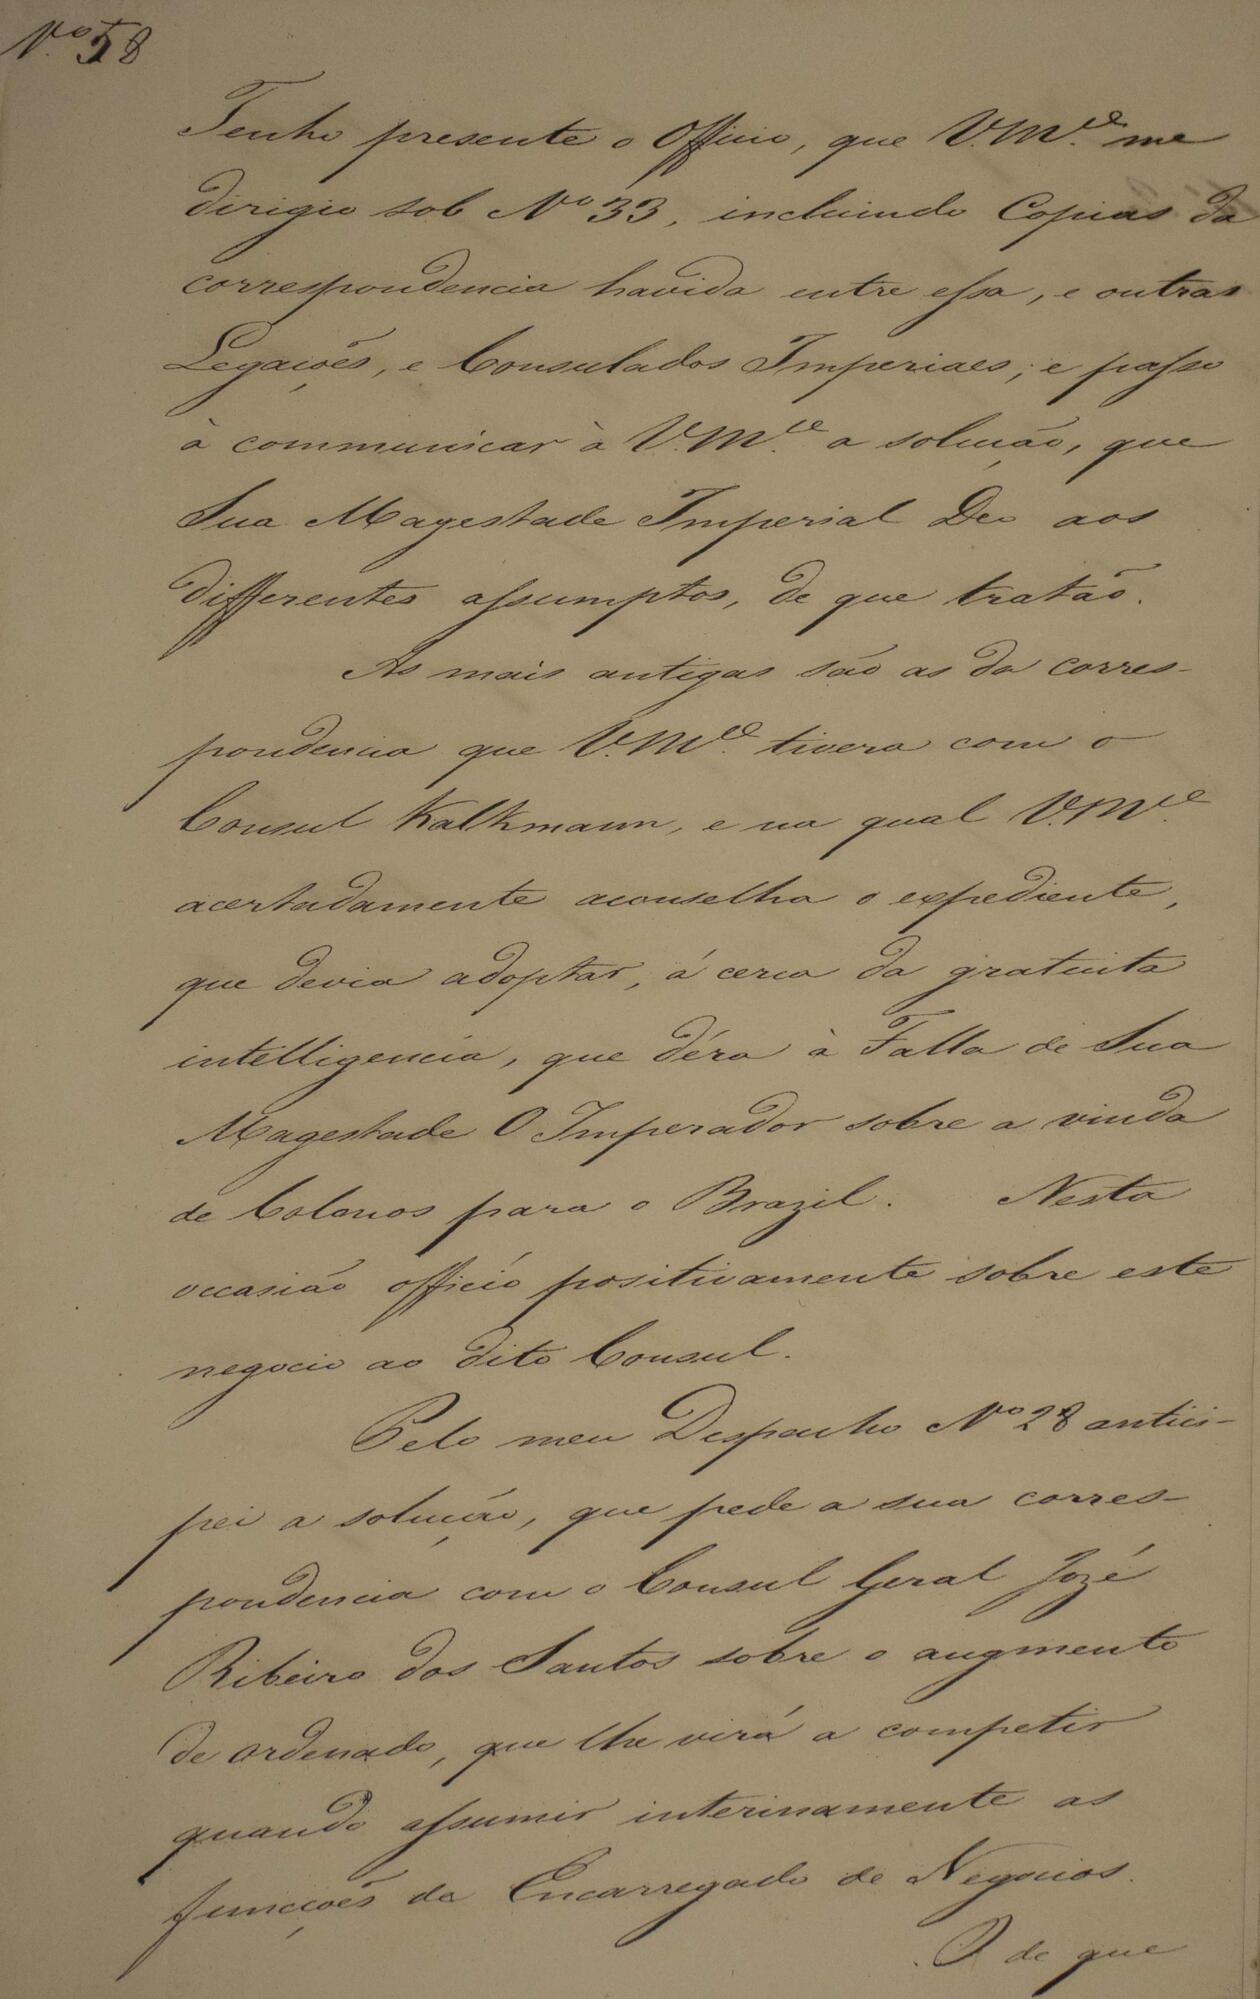 Nº 58
Tenho presente o Officio, que V.Mce. me
dirigio sob Nº 33, incluindo Copias da
correspondencia havida entre essa, e outras
Legações, e Consulados Imperiaes; e passo
à communicar à V.Mce. a solução, que
Sua Magestade Imperial Deo aos
differentes assumptos, de que tratão.
As mais antigas são as da corres-
pondencia que V.Mce. tivera com o
Consul Kalkmann, e na qual V.Mce.
acertadamente aconselha o expediente,
que devia adoptar, á cerca da gratuita
intelligencia, que déra à Falla de Sua
Magestade O Imperador sobre a vinda
de Colonos para o Brazil. Nesta
occasião officio positivamente sobre este
negocio ao dito Consul.
Pelo meu Despacho Nº 28 anteci-
pei a solução, que pede a sua corres-
pondencia com o Consul Geral Jozé
Ribeiro dos Santos sobre o augmento
de ordenado, que lhe virá a competir
quando assumir interinamente as
funcções de Encarregado de Negocios.
O de que